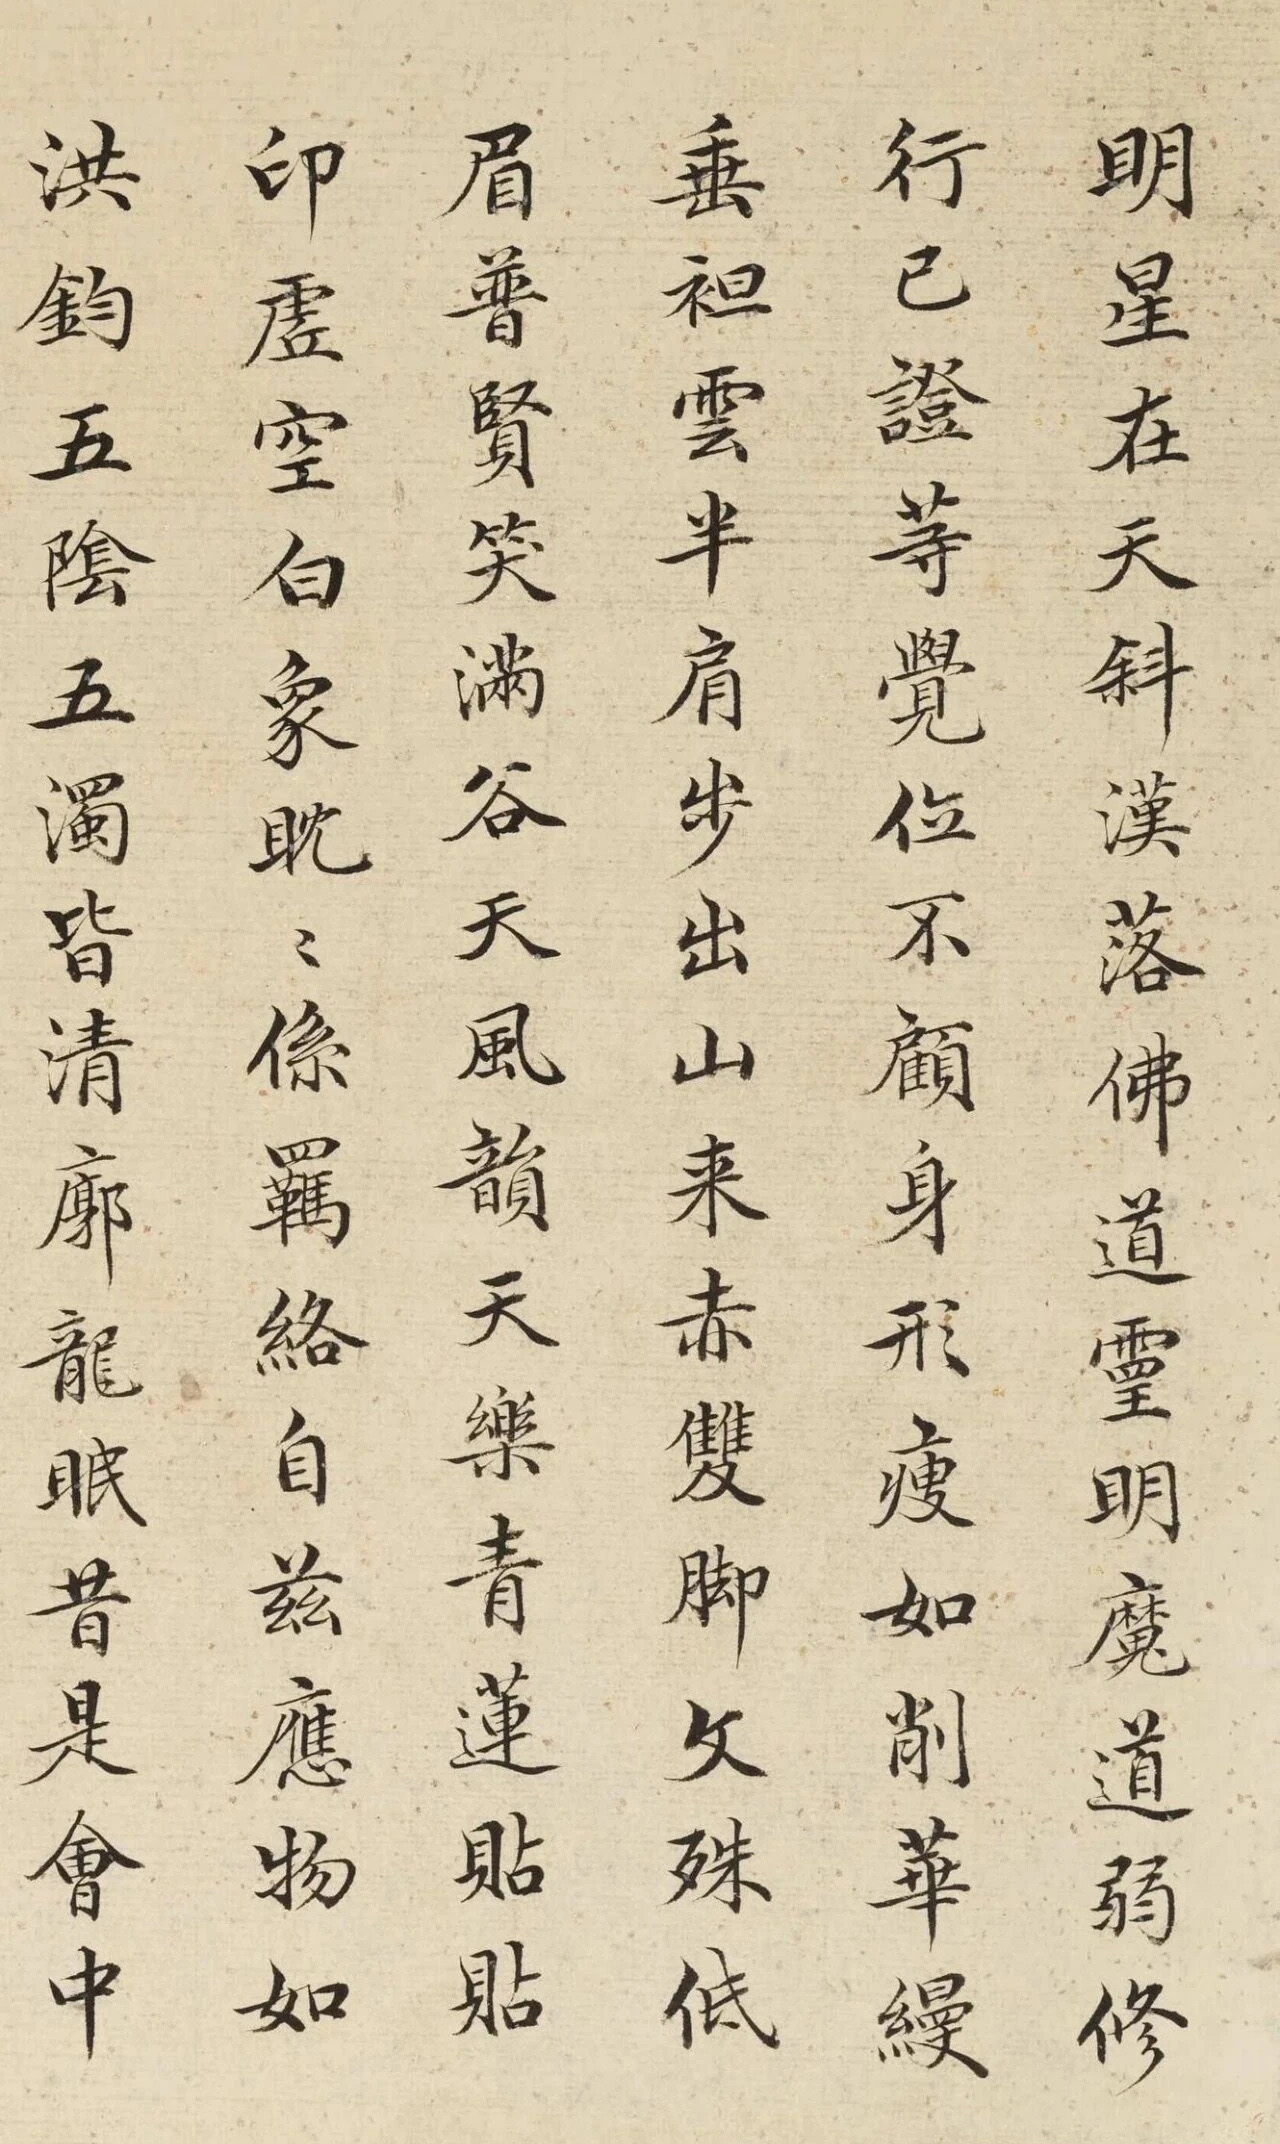 明星在天斜漢落佛道靈明魔道弱修
行已證等覺位不顧身形瘦如削華縵
垂袒雲半肩步出山来赤雙脚文殊低
眉普賢笑滿谷天風韻天樂青蓮貼貼
印虛空白象眈〻係羈絡自兹應物如
洪鈞五陰五濁皆清廓龍眠昔是會中